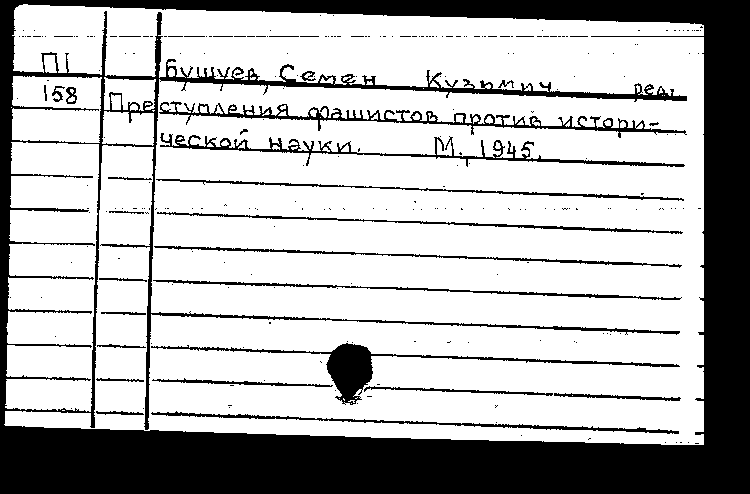 П1 Бушуев, Семен Кузьмич, ред.
158 Преступления фашистов против истори-
ческой науки. М., 1945.